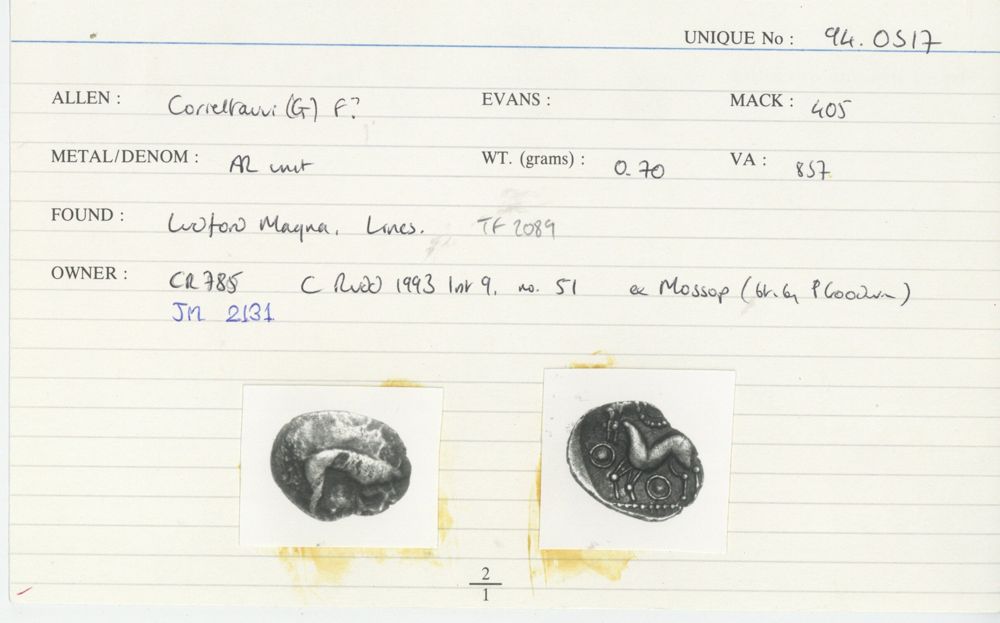 UNIQUE No : 94.0517
ALLEN : Corieltauvi (G) F? EVANS : MACK : 405
METAL/DENOM : AR unit WT. (grams) : 0.70 VA : 857
FOUND : Ludford Magna, Lincs. TF 2089
OWNER : CR785 C Rudd 1993 list 9, no. 51 ex Mossop (bt. by P Goodwin)
JM 2131
2
1